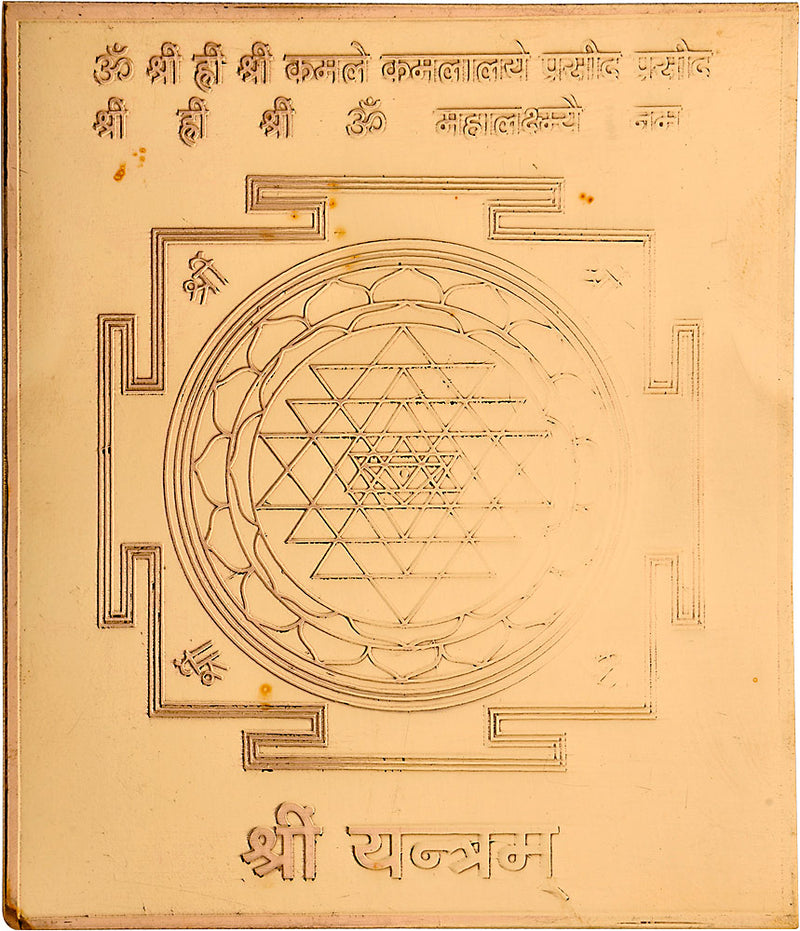 ॐ श्रीं ह्रीं श्रीं कमले कमलालये प्रसीद प्रसीद
श्रीं ह्रीं श्रीं ॐ महालक्ष्म्यै नम
श्रीं
श्रीं
श्री यन्त्रम्